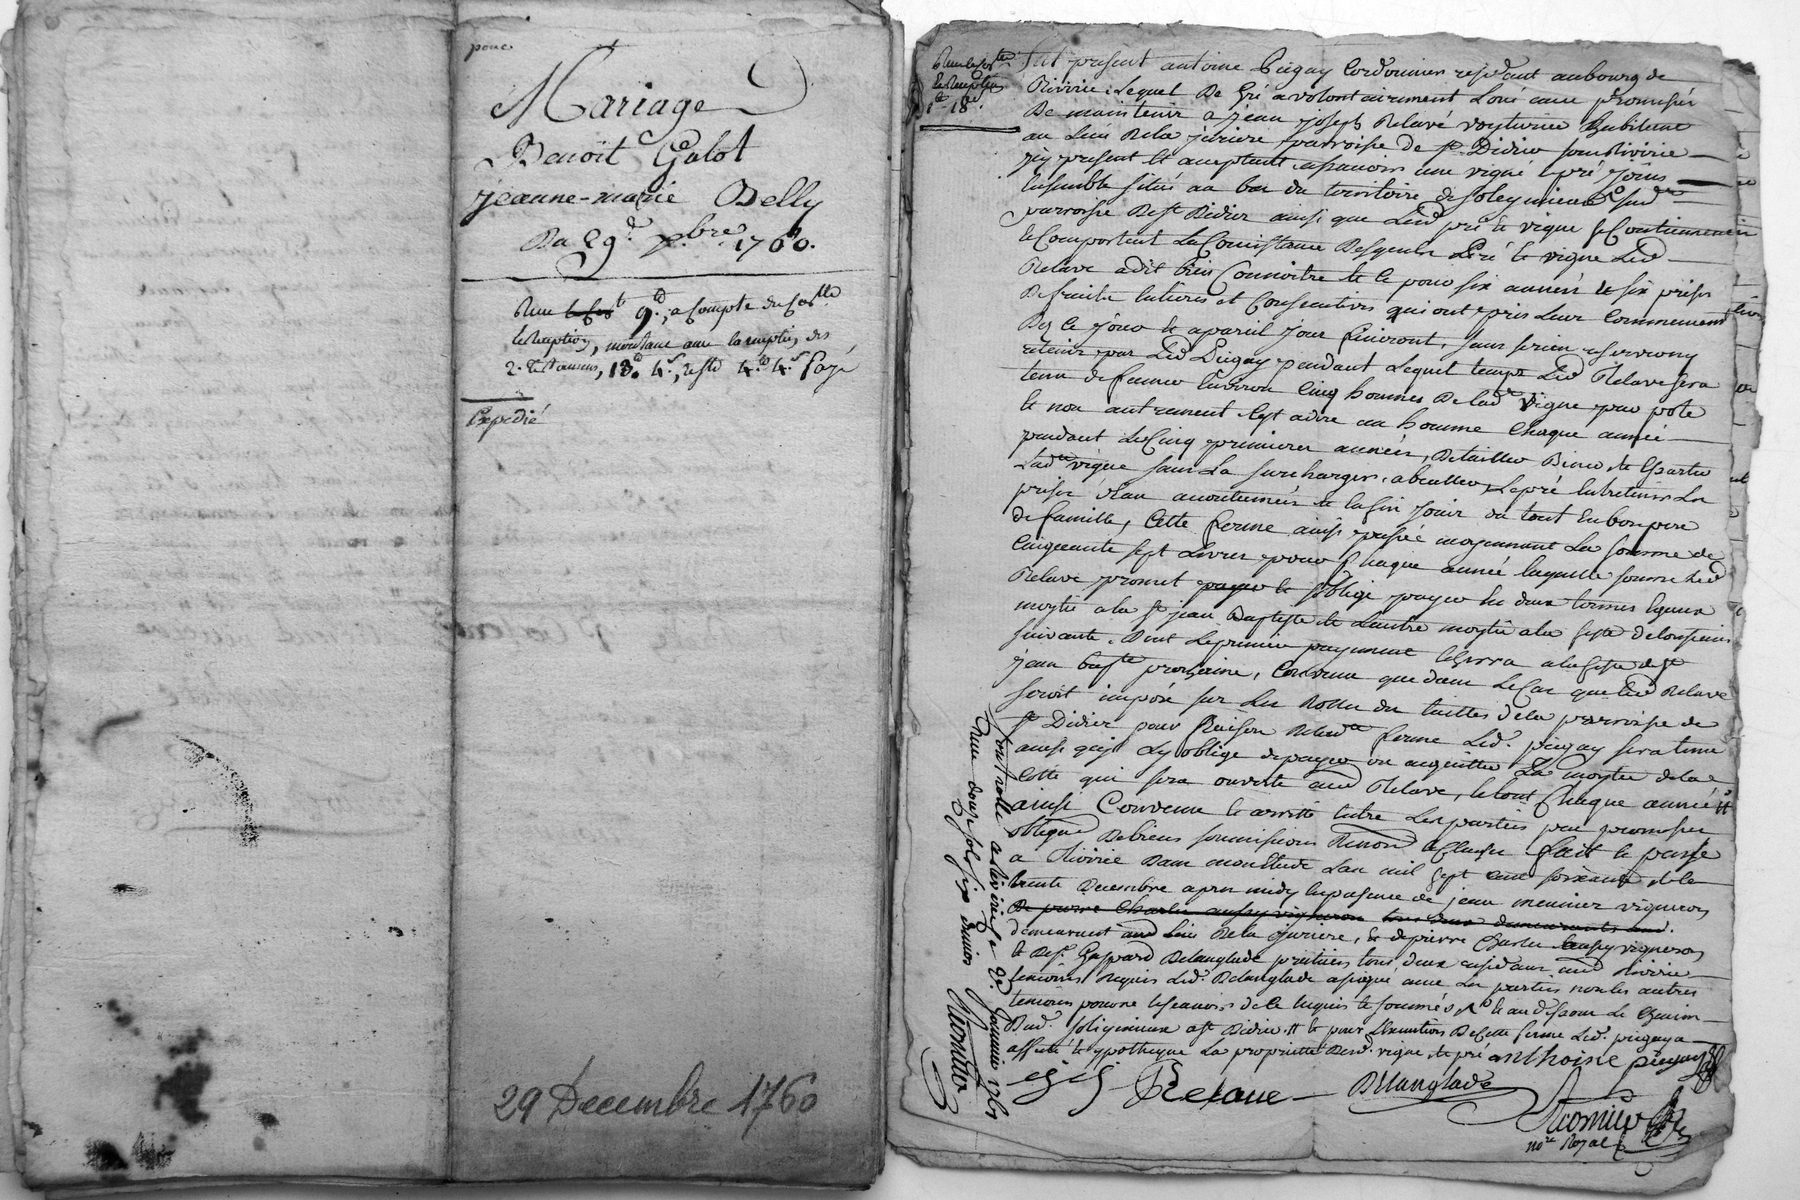 pour
Mariage
Benoit Galot
jeanne-marie Belly
Du 29e xbre 1760.
Reçu 9tt, a Compte du Con
reception, montant avec la
2. 18tt 4s, reste 4tt 4s payé
Expedié
29 Decembre 1760
fut present antoine piegay Cordonnier residant au bourg de
Riverie. Lequel De Gré a volontairement Loué avec promesse
De maintenir a jean joseph Relave voyturier habitant
au Lieu De la jurière parroisse de st. Didier sous Riverie
icy present et acceptant assavoir une vigne & pré joins
ensemble situés au bas du territoire de soleymieux sud.
parroisse De st Didier ainsi que Led. pré et vigne se Contiennent
et Comportent La Consistance Desquels Pré et vigne Led.
Relave a dit bien Connoitre et Ce pour six années et six prises
De fruits entieres et Consecutives qui ont pris Leur Commencement
Des Ce jour et a pareil jour finiront, sans se rien reserver ny
retenir par Led. piegay pendant Lequel temps Led. Relave sera
tenu de fumer Environ Cinq hommes De lad. vigne
et non autrement C'est a dire un homme Chaque année
pendant Les Cinq premieres années, De tailler Biner et
Lad. vigne sans La surcharger, Le pré Entretenir Les
prises d'eau accoutumées et Enfin jouir du tout En bon pere
de famille, Cette ferme ainsi passée moyennant La somme de
Cinquante sept Livres pour Chaque année laquelle somme Led.
Relave promet payer et s'oblige payer En deux termes Egaux
moytié a la st jean Baptiste et L'autre moytié a la feste de
suivante, Dont Le premier payement Echerra a la feste de st
jean bapte prochaine, Convenu que dans Le Cas que Led. Relave
seroit imposé sur Les Rolles des tailles de la parroisse de
st Didier pour Raison De lad. ferme Led. piegay sera tenu
ainsi qu'il s'y oblige de payer ou acquitter La moytié de la
Cotte qui sera ouverte aud. Relave, le tout Chaque année
ainsi Convenu et arretté Entre Les parties par promesse
obligeon De biens soumissions Renons & Clauses fait et passé
a Riverie Dans mon Etude L'an mil sept cent soixante et le
trente Decembre apres midy En presence de jean meunier vigneron
De pierre Charles aussy vigneron tous deux demeurants aud.
demeurant aud. Lieu De la jurière, & de pierre Charles aussy vigneron
et De sr. Gaspard Delanglade praticien tous deux residants aud. Riverie
temoins Requis Led. Delanglade a signé avec Les parties non les autres
temoins pour ne sçavoir de Ce Enquis et sommés
Dud. soleymieux a st Didier. # et pour L'execution De Cette ferme Led. piegay a
affecté et ypothequé La proprieté Desd. vigne, et pré anthoine pieguay
Relave
Delanglade
nore Royal
Controllé a Riverie le 2e. janvier 1761
Reçu douze sols six deniers